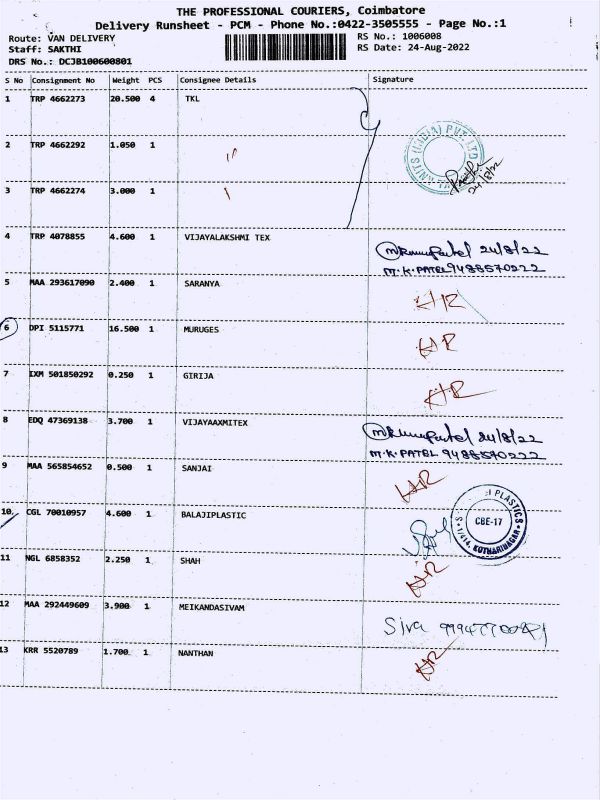 THE PROFESSIONAL COURIERS, Coimbatore
Delivery Runsheet - PCM - Phone No.:0422-3505555 - Page No.:1
Route: VAN DELIVERY RS No.: 1006008
Staff: SAKTHI RS Date: 24-Aug-2022
DRS No.: DCJB100600801
S No Consignment No Weight PCS Consignee Details Signature
1 TRP 4662273 20.500 4 TKL
2 TRP 4662292 1.050 1 "
(INDIA) PVT LTD
24/8/22
3 TRP 4662274 3.000 1
4 TRP 4078855 4.600 1 VIJAYALAKSHMI TEX
24/8/22
M.K.PATEL 9488570222
5 MAA 293617090 2.400 1 SARANYA
6 DPI 5115771 16.500 1 MURUGES
7 IXM 501850292 0.250 1 GIRIJA
8 EDQ 47369138 3.700 1 VIJAYAAXMITEX
24/8/22
M.K.PATEL 9488570222
9 MAA 565854652 0.500 1 SANJAI
10 CGL 70010957 4.600 1 BALAJIPLASTIC
PLASTICS
CBE-17
KOTHARINAGAR
11 NGL 6858352 2.250 1 SHAH
12 MAA 292449609 3.900 1 MEIKANDASIVAM
Siva
13 KRR 5520789 1.700 1 NANTHAN